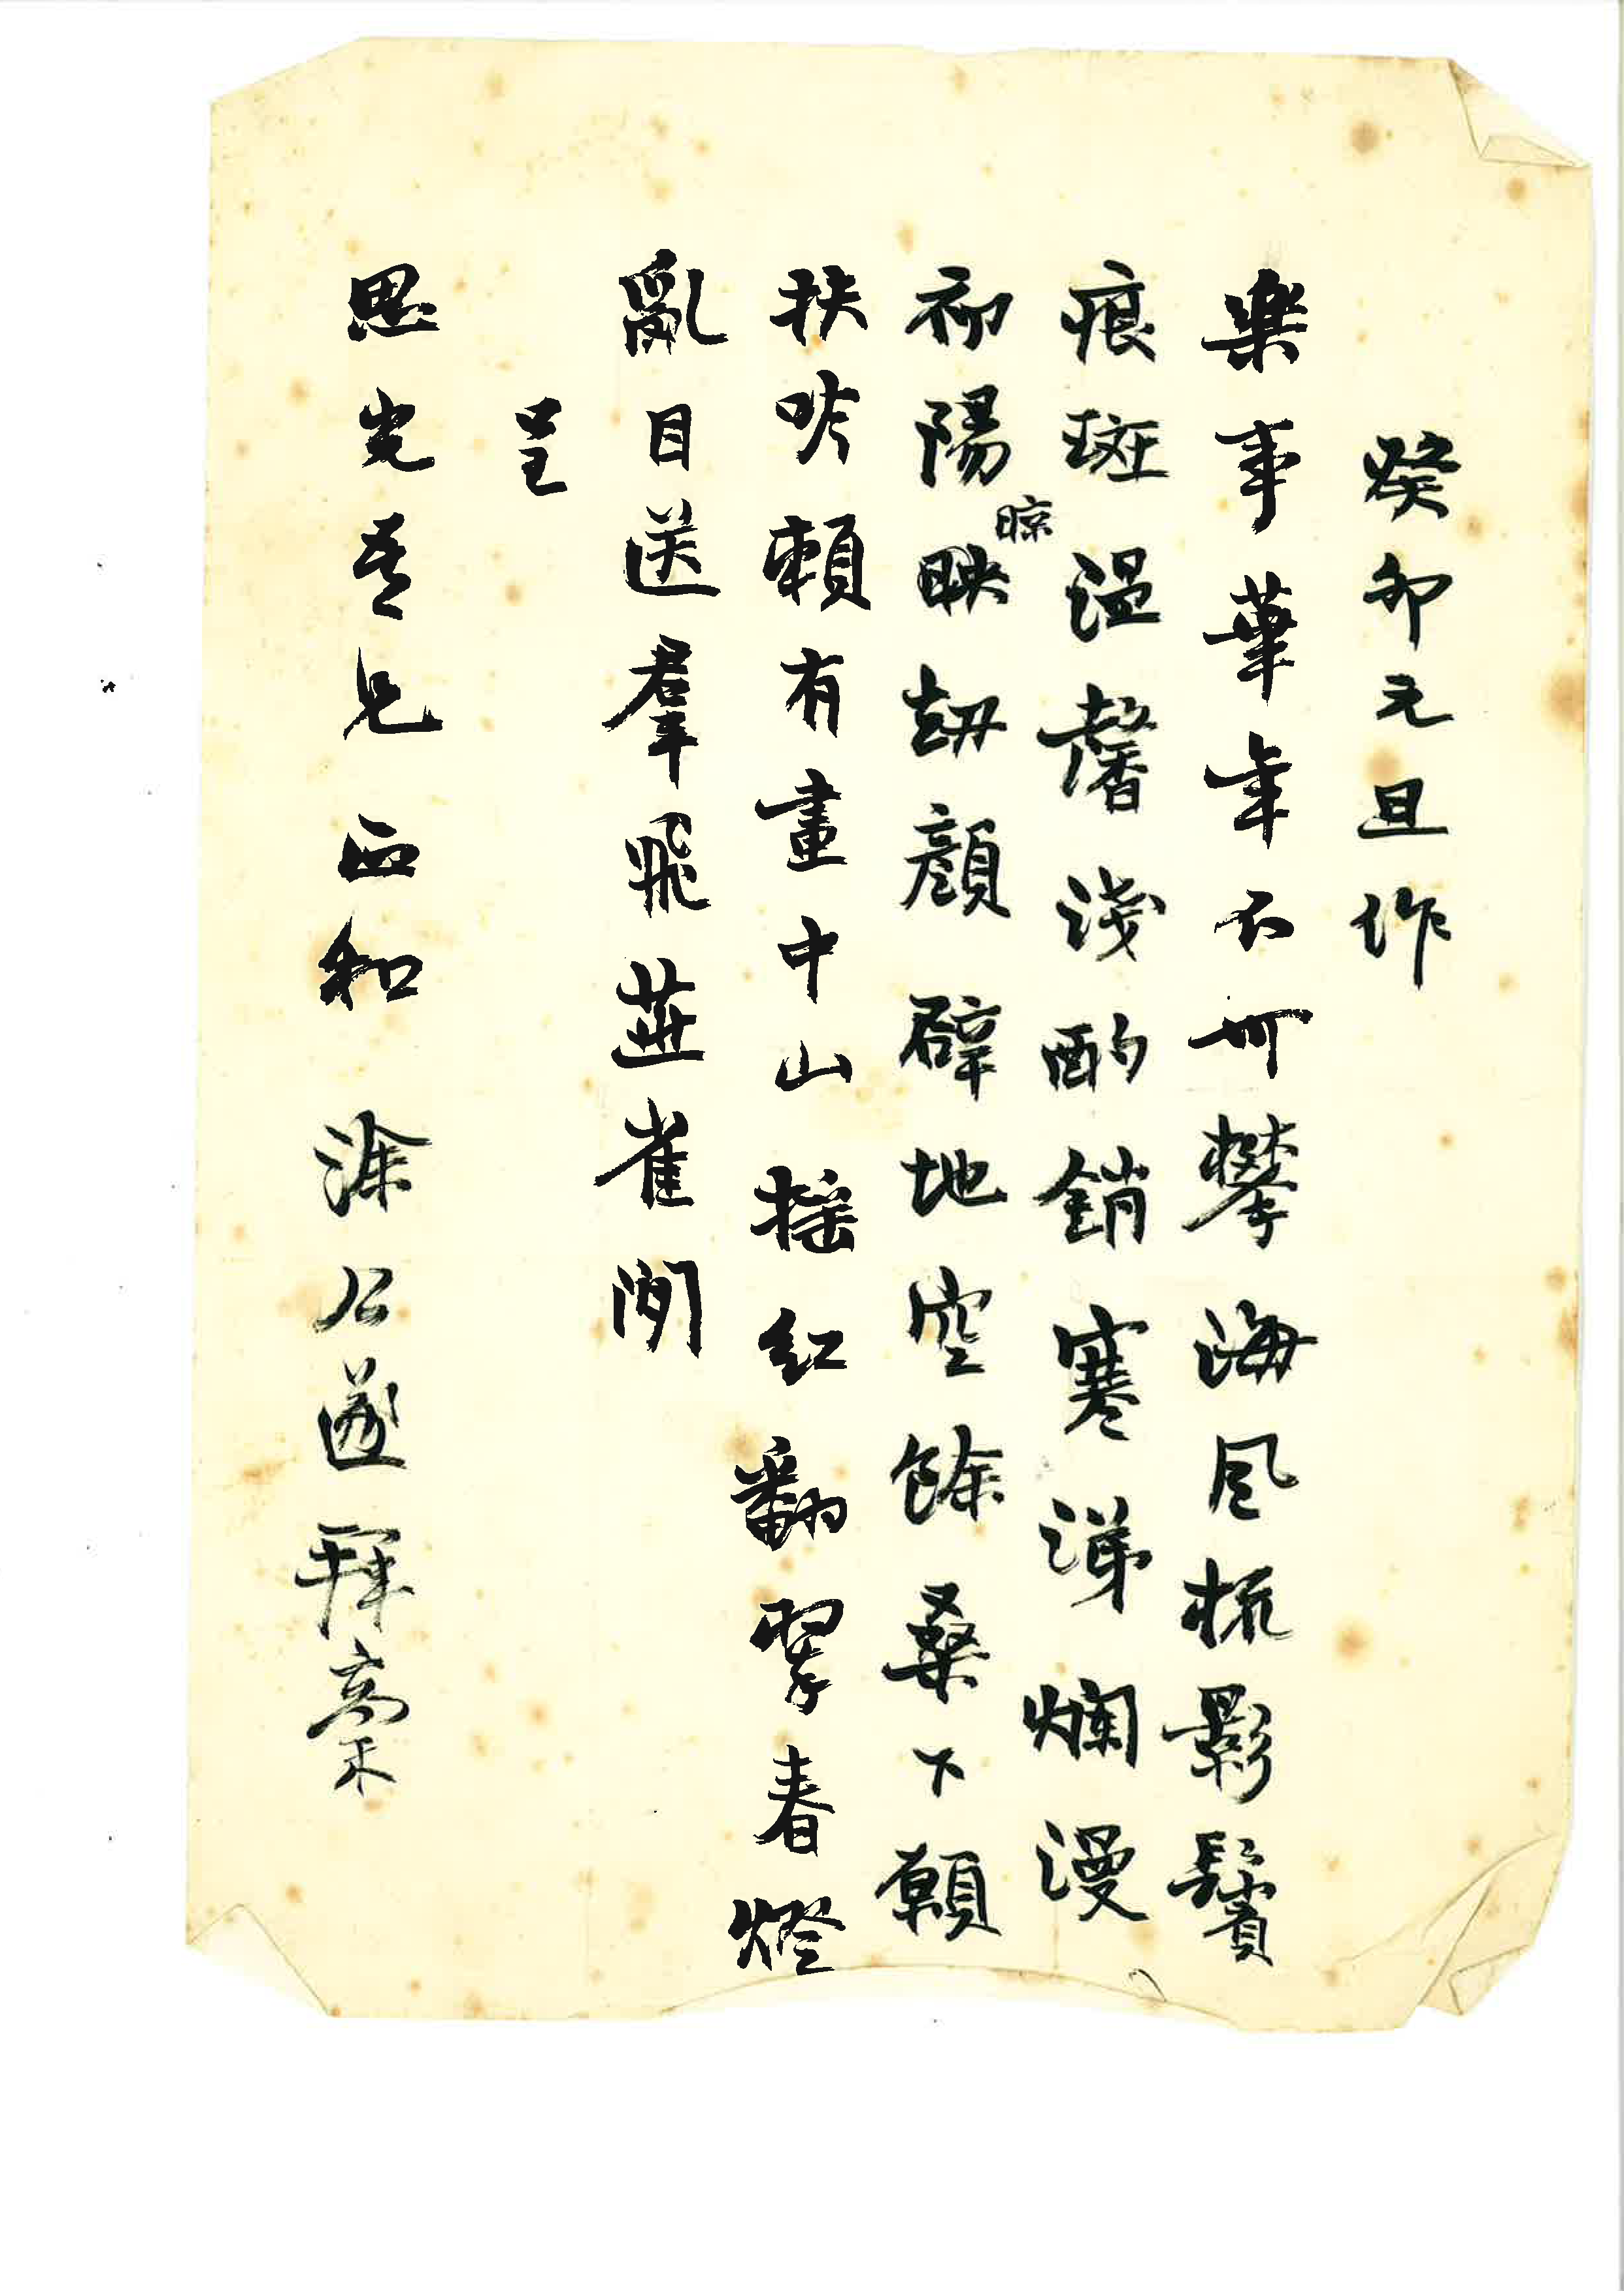 癸卯元旦作
樂事華年不可攀海風梳影鬢
痕斑溫馨淺酌銷寒涕爛漫
初陽映劫顏辟地空餘桑下願
晾
扶吟賴有畫中山搖紅翻翠春燈
亂目送羣飛燕雀閒
呈
思光吾兄正和 涂公遂拜稾